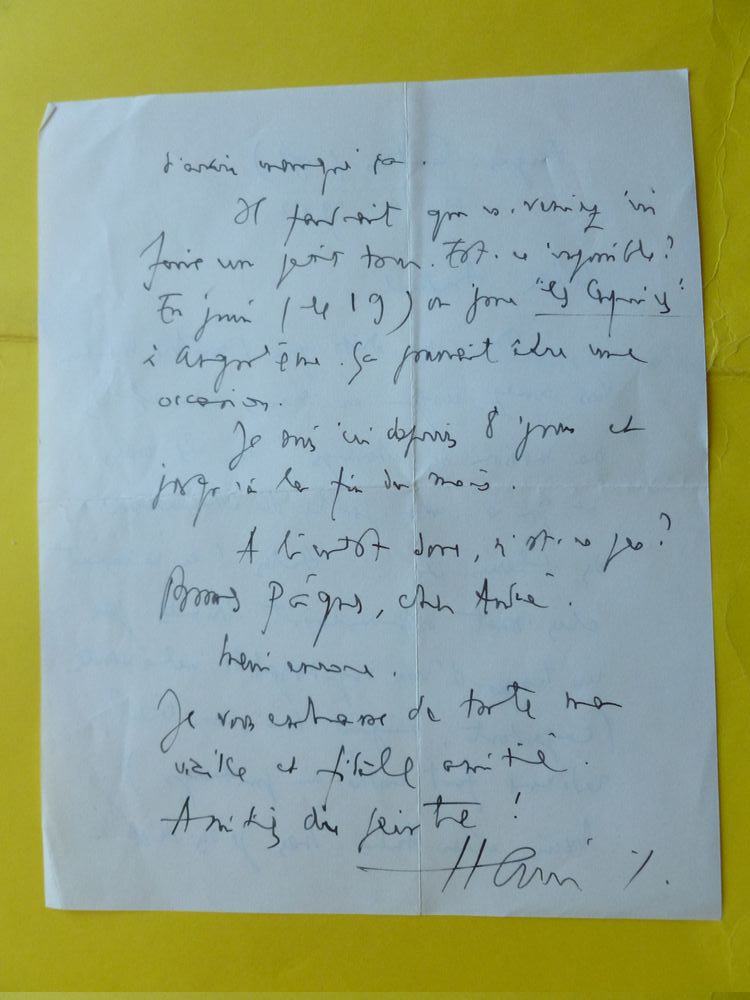 d'avoir manqué ça.
Il faudrait que v. veniez ici
faire un petit tour. Est-ce impossible?
En juin (le 19) on joue "les Caprices"
à Angoulême. Ça pourrait être une
occasion.
Je suis ici depuis 8 jours et
jusqu'à la fin du mois.
A bientôt donc, n'est-ce pas?
Bonnes Pâques, cher André.
Merci encore.
Je vous embrasse de toute ma
vieille et fidèle amitié.
Amitiés du peintre!
Henri